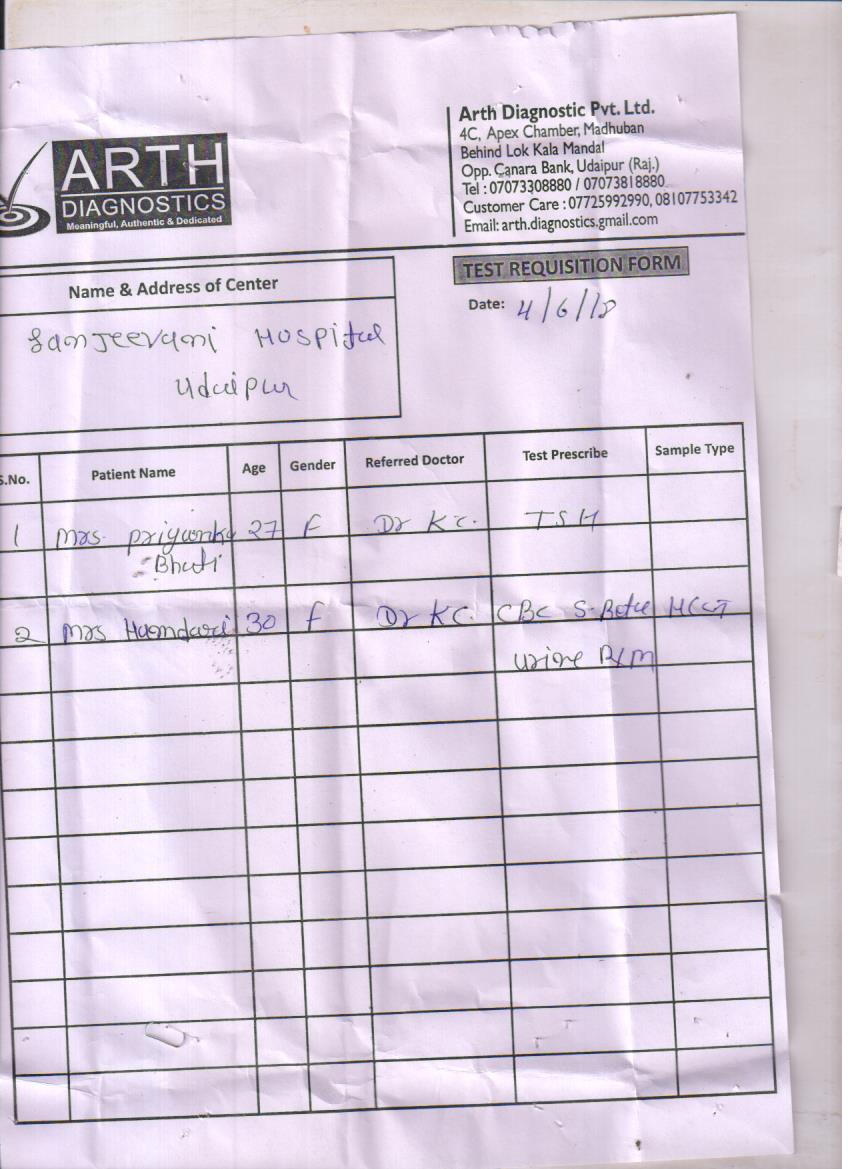 ARTH
DIAGNOSTICS
Meaningful, Authentic & Dedicated
Arth Diagnostic Pvt. Ltd.
4C, Apex Chamber, Madhuban
Behind Lok Kala Mandal
Opp. Canara Bank, Udaipur (Raj.)
Tel : 07073308880 / 07073818880
Customer Care : 07725992990, 08107753342
Email: arth.diagnostics.gmail.com
TEST REQUISITION FORM
Date: 4/6/18
Name & Address of Center
Sanjeevani Hospital
Udaipur
S.No. Patient Name Age Gender Referred Doctor Test Prescribe Sample Type
1 Mrs. Priyanka 27 F Dr KC. TSH
Bhati
2 Mrs 30 F Dr KC. CBC S-Beta HCG
Urine R/M